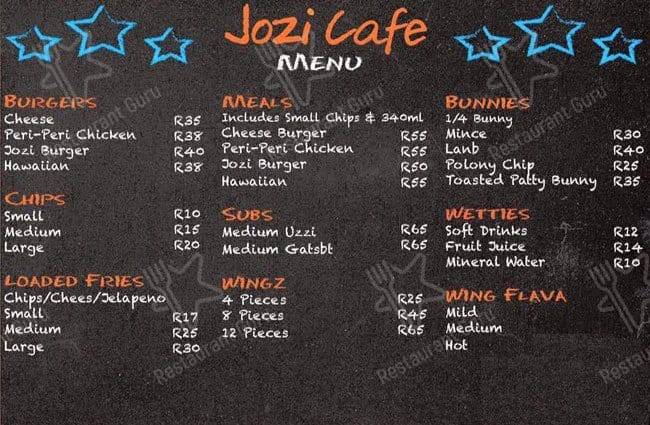 Jozi Cafe
MENU
BURGERS
Cheese R35
Peri-Peri Chicken R38
Jozi Burger R40
Hawaiian R38
CHIPS
Small R10
Medium R15
Large R20
LOADED FRIES
Chips/Chees/Jelapeno
Small R17
Medium R25
Large R30
MEALS
Includes Small Chips & 340ml
Cheese Burger R55
Peri-Peri Chicken R55
Jozi Burger R50
Hawaiian R55
SUBS
Medium Uzzi R65
Medium Gatsbt R65
WINGZ
4 Pieces R25
8 Pieces R45
12 Pieces R65
BUNNIES
1/4 Bunny
Mince R30
Lanb R40
Polony Chip R25
Toasted Patty Bunny R35
WETTIES
Soft Drinks R12
Fruit Juice R14
Mineral Water R10
WING FLAVA
Mild
Medium
Hot
Restaurant Guru
Restaurant Guru
Restaurant Guru
Restaurant Guru
Restaurant Guru